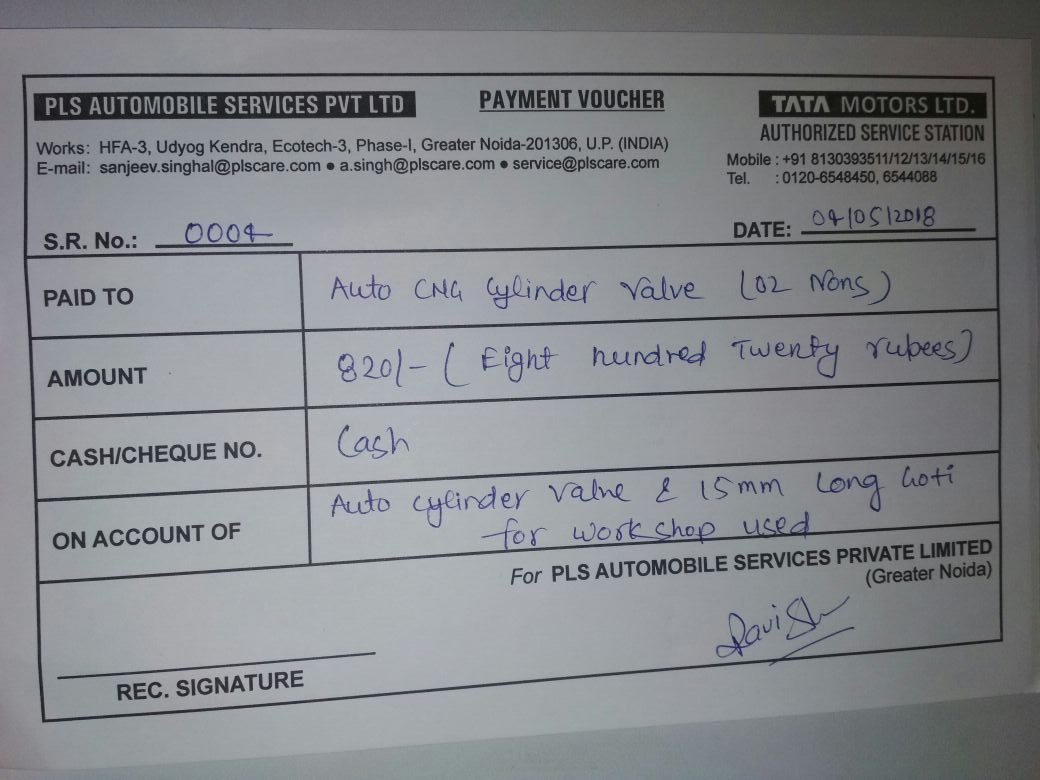 PLS AUTOMOBILE SERVICES PVT LTD
PAYMENT VOUCHER
TATA MOTORS LTD.
AUTHORIZED SERVICE STATION
Works: HFA-3, Udyog Kendra, Ecotech-3, Phase-I, Greater Noida-201306, U.P. (INDIA)
E-mail: sanjeev.singhal@plscare.com ● a.singh@plscare.com ● service@plscare.com
Mobile : +91 8130393511/12/13/14/15/16
Tel. : 0120-6548450, 6544088
S.R. No.: 0004
DATE: 04/05/2018
PAID TO Auto CNG Cylinder Valve (02 Nons)
AMOUNT 820/- (Eight hundred Twenty rupees)
CASH/CHEQUE NO. Cash
ON ACCOUNT OF Auto cylinder valve & 15mm Long
for workshop used
For PLS AUTOMOBILE SERVICES PRIVATE LIMITED
(Greater Noida)
Ravish
REC. SIGNATURE